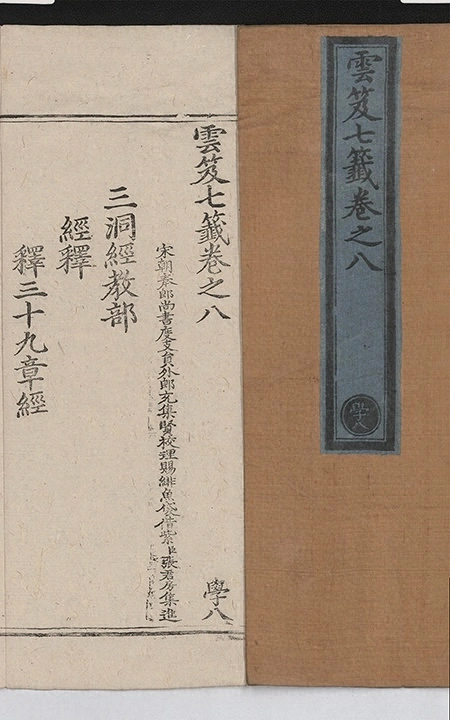 雲笈七籤卷之八
學八
雲笈七籤卷之八
學八
宋朝奉郎尚書度支員外郎充集賢校理賜緋魚袋借紫臣張君房集進
三洞經教部
經釋
釋三十九章經